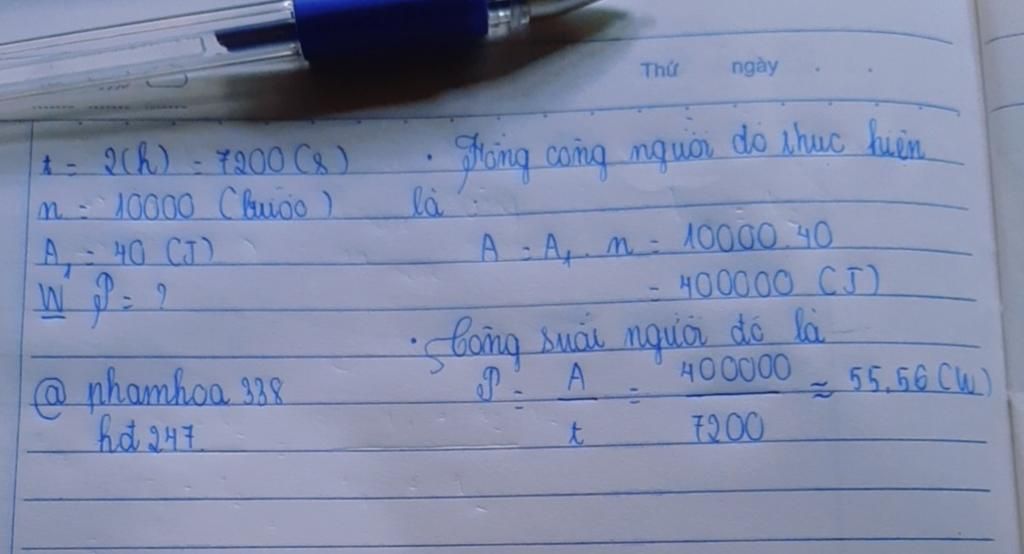 Thứ ngày . .
t = 2(h) = 7200(s)
n = 10000 (bước)
A₁ = 40 (J)
W P = ?
@ phamhoa338
hđ247
. Tổng công người đó thực hiện
là :
A = A₁ . n = 10000.40
= 400000 (J)
. Công suất người đó là
P = A / t = 400000 / 7200 ≈ 55,56 (W)